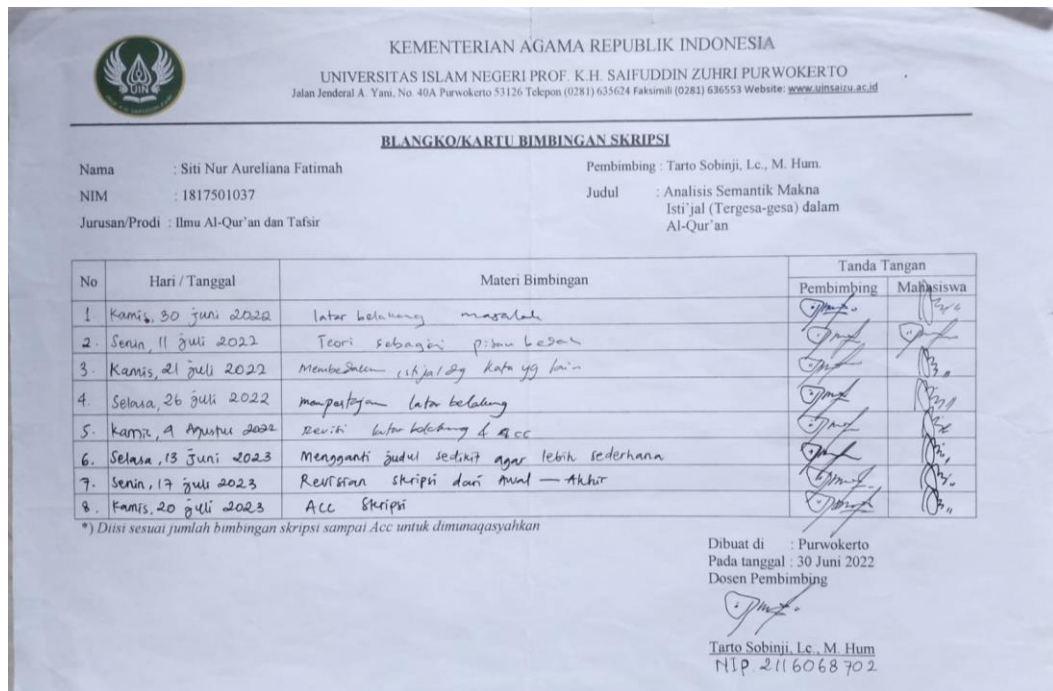 KEMENTERIAN AGAMA REPUBLIK INDONESIA
UNIVERSITAS ISLAM NEGERI PROF. K.H. SAIFUDDIN ZUHRI PURWOKERTO
Jalan Jenderal A. Yani, No. 40A Purwokerto 53126 Telepon (0281) 635624 Faksimili (0281) 636553 Website: www.uinsaizu.ac.id
UIN
BLANGKO/KARTU BIMBINGAN SKRIPSI
Nama : Siti Nur Aureliana Fatimah
NIM : 1817501037
Jurusan/Prodi : Ilmu Al-Qur'an dan Tafsir
Pembimbing : Tarto Sobinji, Lc., M. Hum.
Judul : Analisis Semantik Makna
Isti'jal (Tergesa-gesa) dalam
Al-Qur'an
No Hari / Tanggal Materi Bimbingan Tanda Tangan
Pembimbing Mahasiswa
1. Kamis, 30 Juni 2022 latar belakang masalah
2. Senin, 11 Juli 2022 Teori sebagai pisau bedah
3. Kamis, 21 Juli 2022 Membedakan isti'jal dg kata yg lain
4. Selasa, 26 Juli 2022 mempertajam latar belakang
5. Kamis, 4 Agustus 2022 Revisi latar belakang & Acc
6. Selasa, 13 Juni 2023 Mengganti judul sedikit agar lebih sederhana
7. Senin, 17 Juli 2023 Revisian skripsi dari Awal — Akhir
8. Kamis, 20 Juli 2023 Acc Skripsi
*) Diisi sesuai jumlah bimbingan skripsi sampai Acc untuk dimunaqasyahkan
Dibuat di : Purwokerto
Pada tanggal : 30 Juni 2022
Dosen Pembimbing
Tarto Sobinji, Lc., M. Hum
NIP. 2116068702